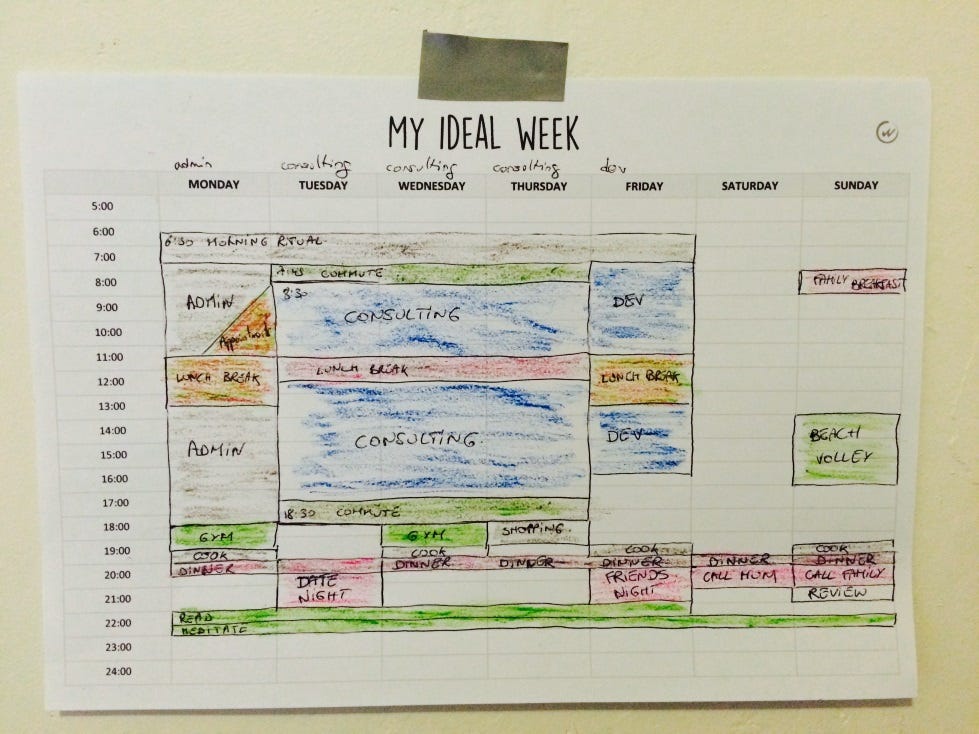 MY IDEAL WEEK
admin consulting consulting consulting dev
MONDAY TUESDAY WEDNESDAY THURSDAY FRIDAY SATURDAY SUNDAY
5:00
6:00
6:30 MORNING RITUAL
7:00
7:45 COMMUTE
8:00 FAMILY BREAKFAST
8:30
ADMIN DEV
9:00
CONSULTING
10:00 Appointment
11:00
LUNCH BREAK LUNCH BREAK LUNCH BREAK
12:00
13:00
14:00 CONSULTING DEV BEACH
15:00 ADMIN VOLLEY
16:00
17:00
18:30 COMMUTE
18:00 GYM GYM SHOPPING
19:00 COOK COOK COOK COOK
DINNER DINNER DINNER DINNER DINNER DINNER
20:00 DATE FRIENDS CALL MUM CALL FAMILY
21:00 NIGHT NIGHT REVIEW
22:00 READ
MEDITATE
23:00
24:00